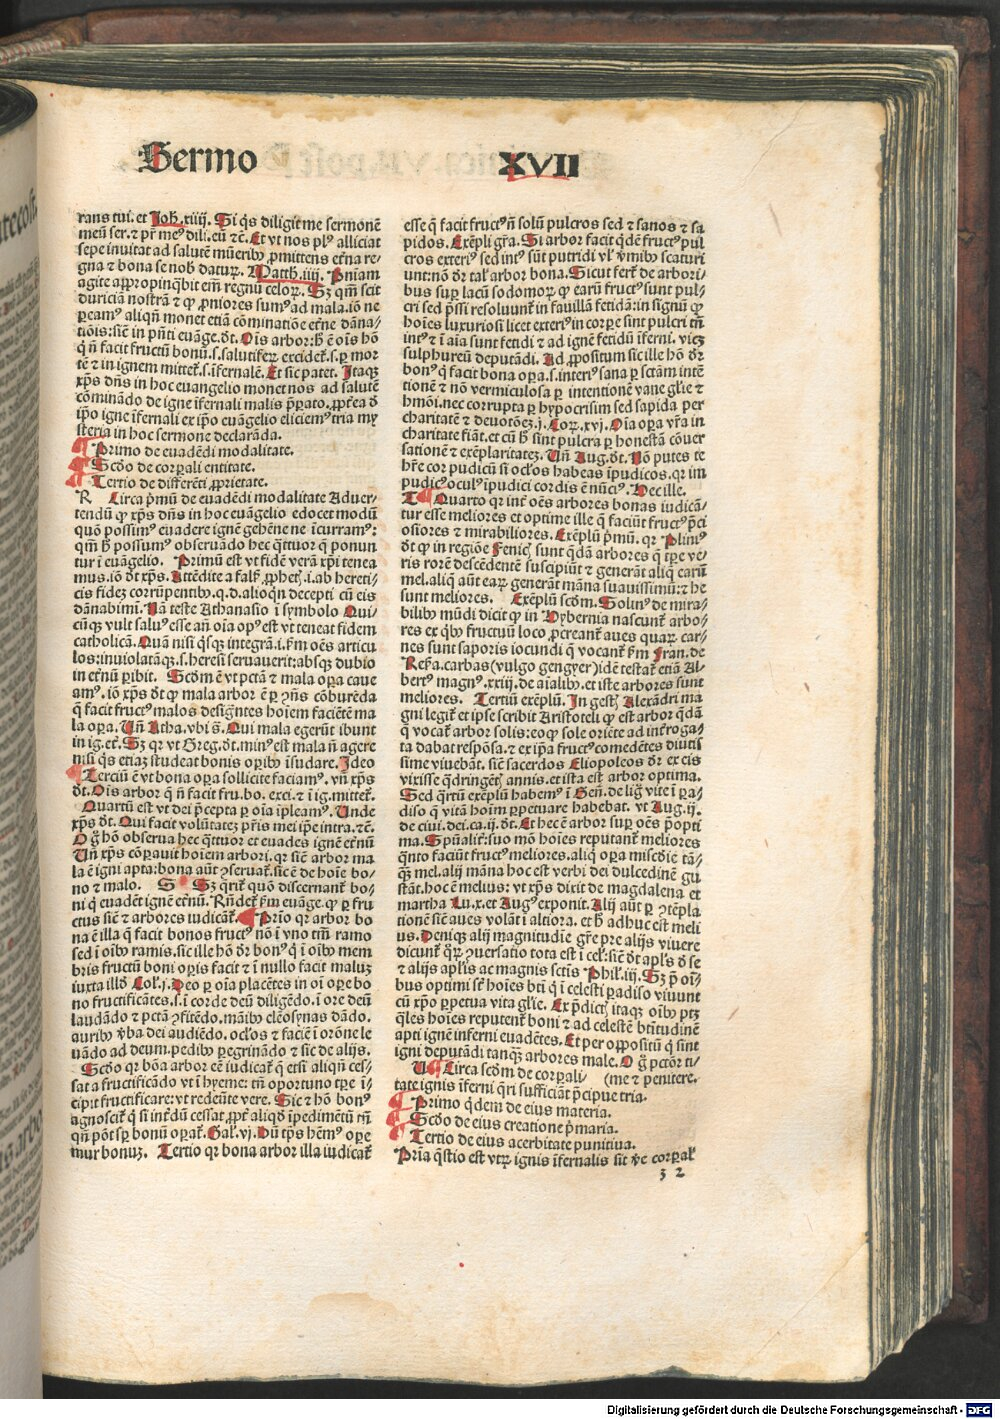 Sermo XVII
rans tui. et Joh̄. xiiij. Si q̄s diligit me sermonē
meū ser. ⁊ pr̄ meꝰ dili. eū ⁊c̄. Et vt nos plꝰ alliciat
sepe inuitat ad salutē mūeribꝰ ꝓmittens et̄na re-
gna ⁊ bona se nob̄ daturꝝ. Matth. iiij. Pniam
agite appropinq̄bit em̄ regnū celoꝝ. Sꝫ qm̄ scit
duriciā nostrā ⁊ ꝙ ꝓniores sumꝰ ad mala. iō ne
ꝑeamꝰ aliqn̄ monet etiā cōminatiōe et̄ne dāna-
tiōis: sic̄ in pn̄ti euāge. dt̄. Ois arbor: h̄ ē ois hō
q̄ n̄ facit fructū bonū. s. salutiferꝝ excidet̄. s. ꝑ mor
tē ⁊ in ignem mittet̄. s. īfernalē. Et sic patet. Itaqꝫ
xp̄s dn̄s in hoc euangelio monet nos ad salutē
cōminādo de igne īfernali malis ꝑ̄pato. ꝓpt̄ea d̄
ip̄o igne īfernali ex ip̄o euāgelio eliciemꝰ tria my
steria in hoc sermone declarāda.
¶ Primo de euadēdi modalitate.
¶ Scd̄o de corꝑali entitate.
¶ Tertio de differēti ꝓprietate.
R Circa p̄mū de euadēdi modalitate Aduer-
tendū ꝙ xp̄s dn̄s in hoc euāgelio edocet modū
quō possimꝰ euadere ignē gehēne ne īcurramꝰ:
qm̄ h̄ possumꝰ obseruādo hec q̄ttuor q̄ ponun
tur ī euāgelio. Primū est vt fidē verā xp̄i tenea
mus. iō dt̄ xp̄s. Attēdite a falẜ ꝓphet̄. i. ab hereti-
cis fideꝫ corrūpentibꝰ. q. d. alioqn̄ decepti cū eis
dānabimī. Nā teste Athanasio ī symbolo Qui
cūqꝫ vult saluꝰ esse an̄ oīa opꝰ est vt teneat fidem
catholicā. Quā nisi q̄sqꝫ integrā. i. ẜm oēs articu
los: inuiolatāqꝫ. s. heresi seruauerit: absqꝫ dubio
in et̄nū ꝑibit. Scd̄m ē vt pctā ⁊ mala oꝑa caue
amꝰ. iō xp̄s dt̄ ꝙ mala arbor ē ꝑ ꝯn̄s cōburēda
q̄ facit fructꝰ malos designātes hoīem faciētē ma
la oꝑa. Un̄ Atha. vbi s̄. Qui mala egerūt ibunt
in ig. et̄. Sꝫ qr vt Greg. dt̄. minꝰ est mala n̄ agere
nisi q̄s etiaꝫ studeat bonis oꝑibꝰ īsudare. Ideo
¶ Terciū ē vt bona oꝑa sollicite faciamꝰ. vn̄ xp̄s
dt̄. Ois arbor q̄ n̄ facit fru. bo. exci. ⁊ ī ig. mittet̄.
Quartū est vt dei p̄cepta ꝑ oīa īpleamꝰ. Unde
xp̄s dt̄. Qui facit volūtateꝫ pr̄is mei ip̄e intra. ⁊c̄.
O g̊ hō obserua hec q̄ttuor et euades ignē et̄nū
Un̄ xp̄s cōparauit hoīem arbori. qr sic̄ arbor ma
la ē igni apta: bona aūt ꝯseruat̄. sic̄ ē de hoīe bo-
no ⁊ malo. S Sꝫ q̄rit̄ quō discernant̄ bo-
ni q̄ euadēt ignē et̄nū. Rn̄det̄ ẜm euāge. ꝙ ꝑ fru
ctus sic̄ ⁊ arbores iudicāt̄. ¶ Prīo qr arbor bo
na ē illa q̄ facit bonos fructꝰ nō ī vno tm̄ ramo
sed ī oībꝰ ramis. sic ille hō dr̄ bonꝰ q̄ ī oībꝰ mem
bris fructū boni oꝑis facit ⁊ ī nullo facit maluꝫ
iuxta illḋ Col. j. Deo ꝑ oīa placētes in oī oꝑe bo
no fructificātes. s. ī corde deū diligēdo. ī ore deū
laudādo ⁊ pctā ꝯfitēdo. māibꝰ elēosynas dādo.
auribꝰ v̄ba dei audiēdo. ocl̓os ⁊ faciē ī orōne le
uādo ad deum. pedibꝰ ꝑegrinādo ⁊ sic de alijs.
Scd̄o qr bōa arbor eē iudicat̄ q̄ etsi aliqn̄ ces-
sat a fructificādo vt ī hyeme: tn̄ oportuno tꝑe ī-
cipit fructificare: vt redeūte vere. Sic ⁊ hō bonꝰ
agnoscit̄ q̄ si int̄dū cessat, ꝓpt̄ aliqḋ īpedimētū tn̄
qn̄ pōt sꝑ bonū oꝑat̄. Gal̓. vj. Dū tp̄s hēmꝰ oꝑe
mur bonuꝫ. Tertio qr bona arbor illa iudicat̄
esse q̄ facit fructꝰ n̄ solū pulcros sed ⁊ sanos ⁊ sa
pidos. Exēpli gr̄a. Si arbor facit q̄dē fructꝰ pul
cros exteriꝰ sed intꝰ sūt putridi vl̓ v̄mibꝰ scaturi
unt: nō dr̄ tal̓ arbor bona. Sicut fert̄ de arbori-
bus suꝑ lacū sodomoꝝ ꝙ earū fructꝰ sunt pul-
cri sed p̄ssi resoluunt̄ in fauillā fetidā: in signū ꝙ
hoīes luxuriosi licet exteriꝰ in corꝑe sint pulcri tn̄
intꝰ ⁊ ī aīa sunt fetidi ⁊ ad ignē fetidū īferni. viꝫ
sulphureū deputādi. Ad ꝓpositum sic ille hō dr̄
bonꝰ q̄ facit bona oꝑa. s. interiꝰ sana ꝑ sctām intē
tionē ⁊ nō vermiculosa ꝑ intentionē vane gl̓ie ⁊
hmōi. nec corrupta ꝑ hypocrisim sed sapida per
charitatē ⁊ deuotōeꝫ. j. Coꝝ. xvj. Oīa oꝑa vr̄a in
charitate fiāt. et cū h̄ sint pulcra ꝑ honestā cōuer
sationē ⁊ exēplaritateꝫ. Un̄ Aug. dt̄. Nō putes te
hr̄e cor pudicū si ocl̓os habeas īpudicos. qr im
pudicꝰ oculꝰ īpudici cordis ē nūciꝰ. Hec ille.
T ¶ Quarto qr int̄ oēs arbores bonas iudicā-
tur esse meliores et optime ille q̄ faciūt fructꝰ p̄ci
osiores ⁊ mirabiliores. Exēplū p̄mū. qr Pliniꝰ
dt̄ ꝙ in regiōe Fenic̄ sunt q̄dā arbores q̄ tꝑe ve-
ris rorē descēdentē suscipiūt ⁊ generāt aliq̄ earū
mel. aliq̄ aūt earꝝ generāt māna suauissimū: ⁊ he
sunt meliores. Exēplū scd̄m. Solinꝰ de mira-
bilibꝰ mūdi dicit ꝙ in Hybernia nascunt̄ arbo-
res ex q̄bꝰ fructuū loco ꝓcreant̄ aues quaꝝ car-
nes sunt saporis iocundi q̄ vocant̄ ẜm Fran. de
Reꝯa. carbas (vulgo gengyer) idē testat̄ etiā Al-
bertꝰ magnꝰ. xxiij. de aīalibꝰ. et iste arbores sunt
meliores. Tertiū exēplū. In gest̄ Alexādri ma
gni legit̄ et ipse scribit Aristoteli ꝙ est arbor q̄dā
q̄ vocat̄ arbor solis: eo ꝙ sole oriēte ad int̄roga-
ta dabat respōsa. ⁊ ex ip̄a fructꝰ comedētes diutis
sime viuebāt. sic̄ sacerdos Eliopoleos dr̄ ex eis
vixisse q̄dringēt̄ annis. et ista est arbor optima.
Sed q̄rtū exēplū habemꝰ ī Gen̄. de lig̊ vite ī ꝑa-
diso q̄ vitā hoīm ꝑpetuare habebat. vt Aug. ij.
de ciui. dei. ca. ij. dt̄. Et hec ē arbor suꝑ oēs p̄opti
ma. Spūalit̄: suo mō hoīes reputant̄ meliores
q̄nto faciūt fructꝰ meliores. aliq̄ oꝑa mīsedīe tā-
qꝫ mel. alij māna hoc est verbi dei dulcedinē gu
stāt. hoc ē melius: vt xp̄s dixit de magdalena et
martha Lu. x. et Augꝰ exponit. Alij aūt ꝑ ꝯtēpla
tionē sic̄ aues volāt ī altiora. et h̄ adhuc est meli
us. Deniqꝫ alij magnitudīe gr̄e pre alijs viuere
dicunt̄ q̄ꝝ ꝯuersatio tota est ī cel̓: sic̄ dt̄ apl̓s d̄ se
⁊ alijs apl̓is ac magnis sctīs Phil̓. iij. Sꝫ p̄ oī-
bus optimi st̄ hoīes bti q̄ ī celesti ꝑadiso viuunt
cū xp̄o ꝑpetua vita gl̓ie. Ex p̄dict̄ itaqꝫ oībꝰ ptꝫ
q̄les hoīes reputent̄ boni ⁊ ad celestē btītudinē
apti ignē inferni euadētes. Et per oppositū q̄ sint
igni deputādi tanqꝫ arbores male. O g̊ pctōr ti-
V ¶ Circa scd̄m de corꝑali (me ⁊ penitere.
tate ignis īferni q̄ri sufficiāt p̄cipue tria.
¶ Primo q̄dem de eius materia.
¶ Scd̄o de eius creatione p̄maria.
¶ Tertio de eius acerbitate punitiua.
Prīa q̄stio est vtꝝ ignis īfernalis sit ve corꝑal̓
3 2
Digitalisierung gefördert durch die Deutsche Forschungsgemeinschaft - DFG